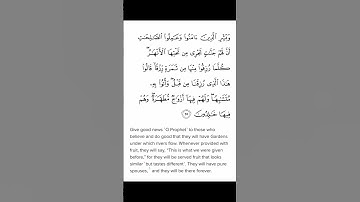 وَبَشِّرِ ٱلَّذِينَ ءَامَنُوا۟ وَعَمِلُوا۟ ٱلصَّـٰلِحَـٰتِ
أَنَّ لَهُمْ جَنَّـٰتٍ تَجْرِى مِن تَحْتِهَا ٱلْأَنْهَـٰرُ ۖ
كُلَّمَا رُزِقُوا۟ مِنْهَا مِن ثَمَرَةٍ رِّزْقًا ۙ قَالُوا۟
هَـٰذَا ٱلَّذِى رُزِقْنَا مِن قَبْلُ ۖ وَأُتُوا۟ بِهِۦ
مُتَشَـٰبِهًا ۖ وَلَهُمْ فِيهَآ أَزْوَٰجٌ مُّطَهَّرَةٌ ۖ وَهُمْ
فِيهَا خَـٰلِدُونَ ٢٥
Give good news ˹O Prophet˺ to those who
believe and do good that they will have Gardens
under which rivers flow. Whenever provided with
fruit, they will say, “This is what we were given
before,” for they will be served fruit that looks
similar ˹but tastes different˺. They will have pure
spouses, ¹ and they will be there forever.